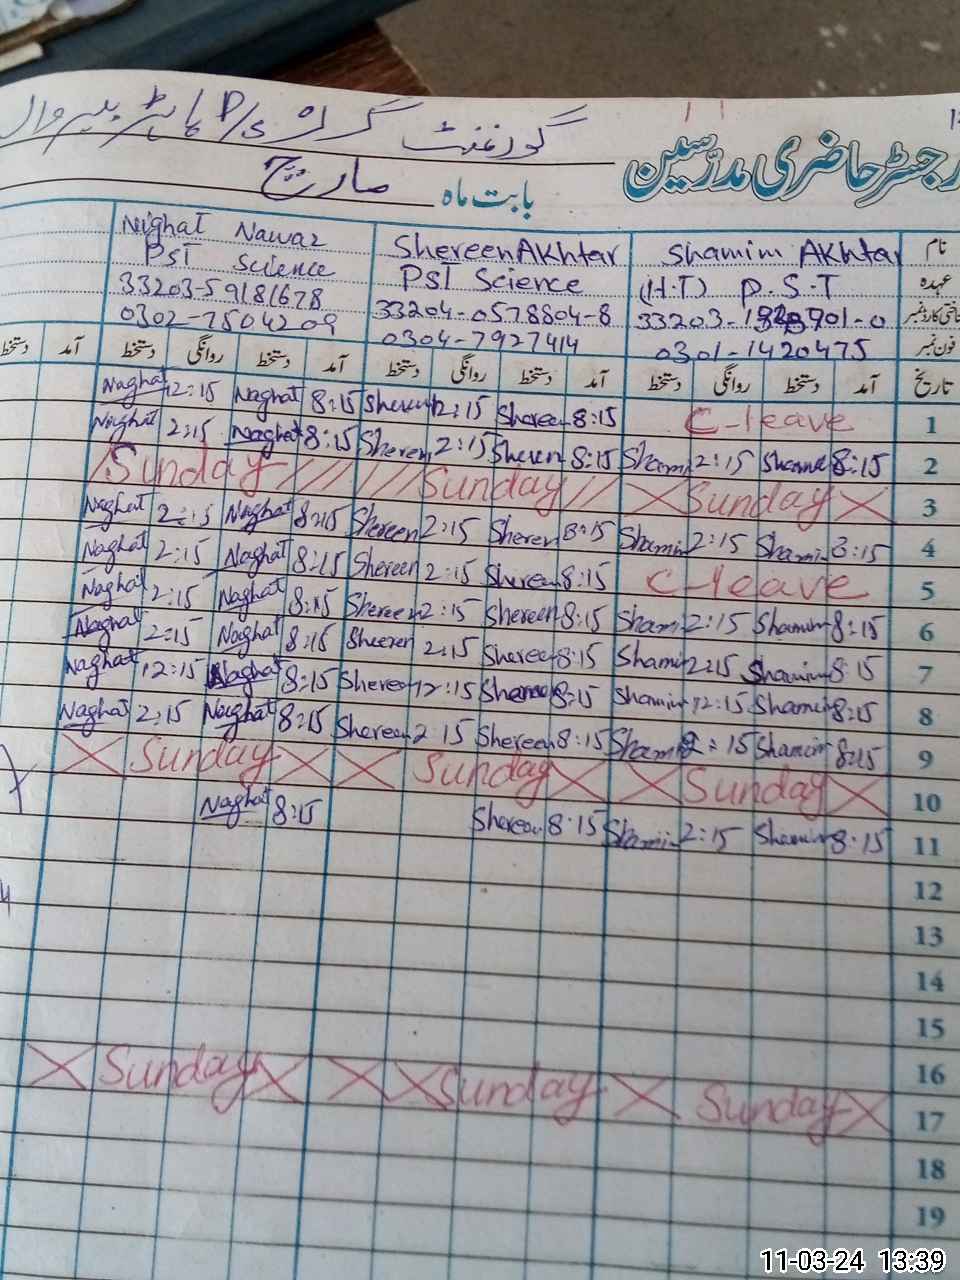 گورنمنٹ گرلز P/S
رجسٹر حاضری مدرسین
بابت ماہ مارچ
نام Shamim Akhtar Shereen Akhtar Nighat Nawaz
عہدہ (H.T) P.S.T PST Science PST Science
33204-0578804-8 33203-59181678
فون نمبر 0301-1420475 0304-7927414 0302-7504209
تاریخ آمد دستخط روانگی دستخط آمد دستخط روانگی دستخط آمد دستخط روانگی دستخط آمد دستخط
1 C-leave 8:15 Shereen 12:15 Shereen 8:15 Naghat 12:15 Naghat
2 8:15 Shamim 2:15 Shamim 8:15 Shereen 2:15 Shereen 8:15 Naghat 2:15 Naghat
3 Sunday Sunday Sunday
4 8:15 Shamim 2:15 Shamim 8:15 Shereen 2:15 Shereen 8:15 Naghat 2:15 Naghat
5 C-leave 8:15 Shereen 2:15 Shereen 8:15 Naghat 2:15 Naghat
6 8:15 Shamim 2:15 Shami 8:15 Shereen 2:15 Shereen 8:15 Naghat 2:15 Naghat
7 8:15 Shamim 2:15 Shamim 8:15 Shereen 2:15 Sheeren 8:15 Naghat 2:15 Naghat
8 8:15 Shamim 12:15 Shamim 8:15 Shereen 12:15 Shereen 8:15 Naghat 12:15 Naghat
9 8:15 Shamim 2:15 Shamim 8:15 Shereen 2:15 Shereen 8:15 Naghat 2:15 Naghat
10 Sunday Sunday Sunday
11 8:15 Shamim 2:15 Shamim 8:15 Shereen 8:15 Naghat
12
13
14
15
16
17 Sunday Sunday Sunday
18
19
11-03-24 13:39